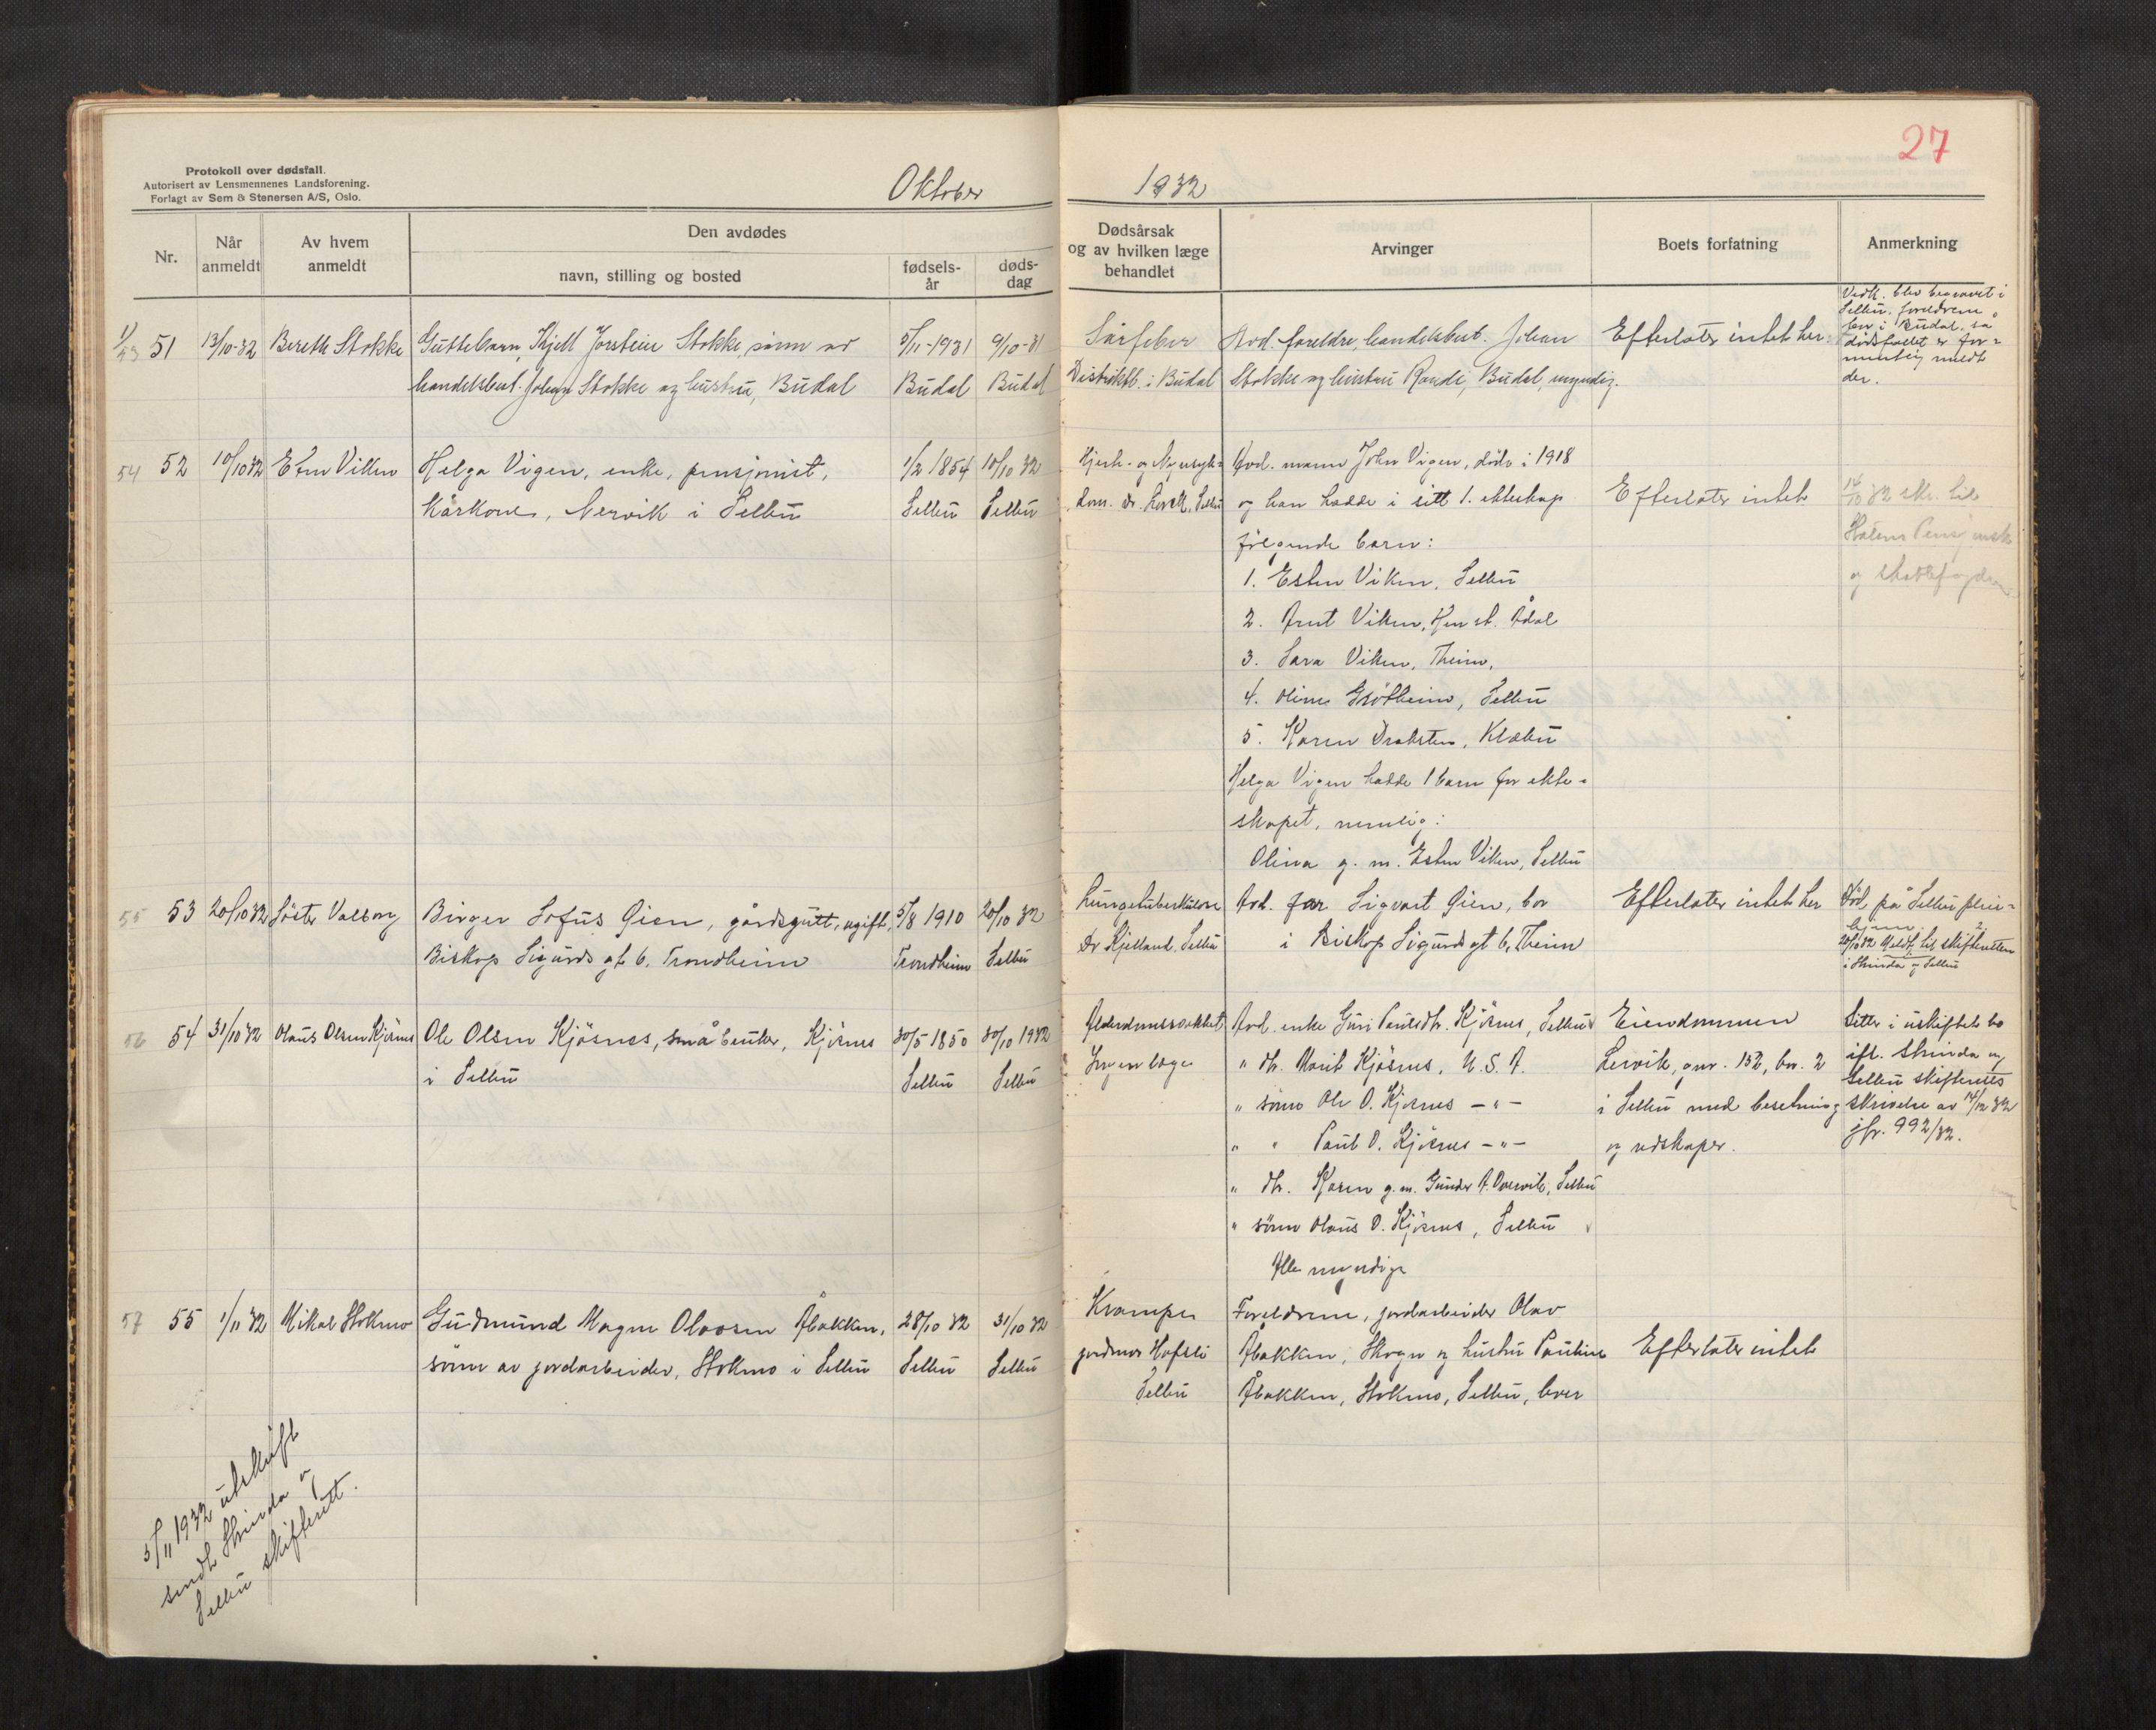 27
Protokoll over dødsfall.
Autorisert av Lensmennenes Landsforening.
Forlagt av Sem & Stenersen A/S, Oslo.
Oktober 1932
Nr.
Når anmeldt
Av hvem anmeldt
Den avdødes
navn, stilling og bosted
fødsels-år
døds-dag
Dødsårsak og av hvilken læge behandlet
Arvinger
Boets forfatning
Anmerkning
51 13/10-32 Bereth Stokke
Guttebarn, Kjell Jorstein Stokke, sønn av
handelsbest. Johan Stokke og hustru, Budal
5/11-1931 9/10-31
Budal Budal
Sårfeber
Distriktl. i Budal
Avd. foreldre, handelsbest. Johan
Stokke og hustru Randi, Budal, myndig.
Efterlater intet her
Vedk. blev begravet i
Selbu. foreldrene
bor i Budal, så
dødsfallet er for-
mentlig meldt
der.
54 52 10/10 32 Esten Viken
Helga Vigen, enke, pensjonist,
Kårkone, Nervik i Selbu
1/2 1854 10/10 32
Selbu Selbu
Hjerte- og Nyresyk-
dom. Dr. Selbu
Avd. mann John Vigen, døde i 1918
og han hadde i sitt 1. ekteskap
følgende barn:
1. Esten Viken, Selbu
2. Arnt Viken, Hen st. Ådal
3. Sara Viken, Theim,
4. Oline Grøtheim, Selbu
5. Karen Draksten, Klæbu
Helga Vigen hadde 1 barn før ekte-
skapet, nemlig:
Olina g. m. Esten Viken, Selbu
Efterlater intet
14/10 32 skr. til
Statens Pensjonsk
og skattefogden
55 53 20/10 32 Søster Valborg
Birger Sofus Gien, gårdsgutt, ugift,
Biskop Sigurds gt 6, Trondheim
5/8 1910 20/10 32
Trondheim Selbu
Lungetuberkulose
Dr Kjelland, Selbu
Avd. far Sigvart Gien, bor
i Biskop Sigurds gt 6, Theim
Efterlater intet her
Død på Selbu pleie-
hjem.
20/10 32 Meldt til skifteretten
i Strinda og Selbu
56 54 31/10 32 Olaus Olsen Kjøsnes
Ole Olsen Kjøsnes, småbruker, Kjøsnes
i Selbu
30/5 1850 30/10 1932
Selbu Selbu
Alderdomssvakhet
Ingen læge
Avd. enke Guri Paulsdtr. Kjøsnes, Selbu
" dtr. Marit Kjøsnes, U. S. A.
" sønn Ole O. Kjøsnes — " —
" " Paul O. Kjøsnes — " —
" dtr. Karen g. m. Gunder A. Overvik, Selbu
" sønn Olaus O. Kjøsnes, Selbu
Alle myndige
Eiendommen
Lervik, gnr. 152, bnr. 2
i Selbu med besetning
og redskaper.
Sitter i uskiftet bo
ifl. Strinda og
Selbu skifteretts
skrivelse av 14/12 32
jfr. 992/32.
57 55 1/11 32 Mikal Stokmo
Gudmund Magne Olavsen Åbakken,
sønn av jordarbeider, Stokmo i Selbu
28/10 32 31/10 32
Selbu Selbu
Krampe
jordmor Hofsli
Selbu
Foreldrene, jordarbeider Olav
Åbakken, Skogn og hustru Pauline
Åbakken, Stokmo, Selbu, lever
Efterlater intet
5/11 1932 utskrift
sendt Strinda og
Selbu skifterett.